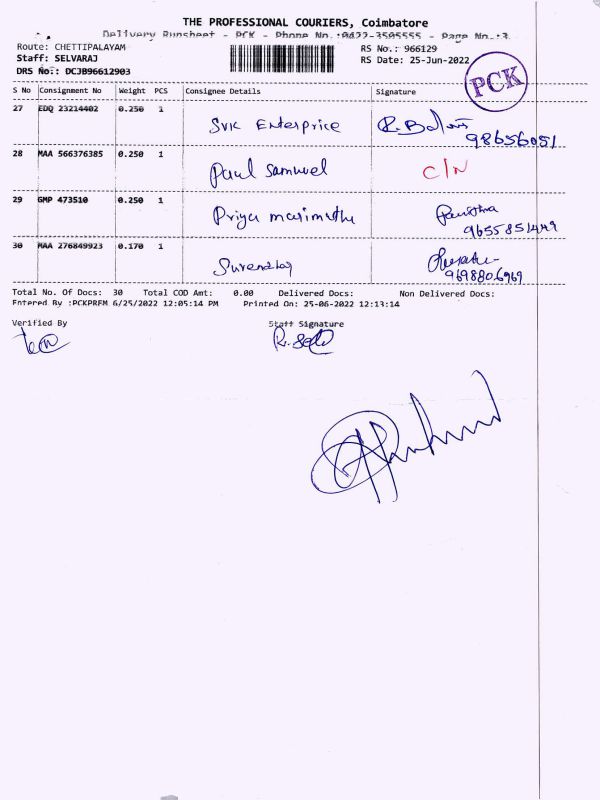 THE PROFESSIONAL COURIERS, Coimbatore
Delivery Runsheet - PCK - Phone No.:0422-3505555 - Page No.:3
Route: CHETTIPALAYAM
Staff: SELVARAJ
DRS No.: DCJB96612903
RS No.: 966129
RS Date: 25-Jun-2022
PCK
S No Consignment No Weight PCS Consignee Details Signature
27 EDQ 23214402 0.250 1 SVK Enterprice 98656051
28 MAA 566376385 0.250 1 Paul Samwuel C/N
29 GMP 473510 0.250 1 Priya marimuthu
30 MAA 276849923 0.170 1 9698806969
Total No. Of Docs: 30 Total COD Amt: 0.00 Delivered Docs: Non Delivered Docs:
Entered By :PCKPRFM 6/25/2022 12:05:14 PM Printed On: 25-06-2022 12:13:14
Verified By Staff Signature